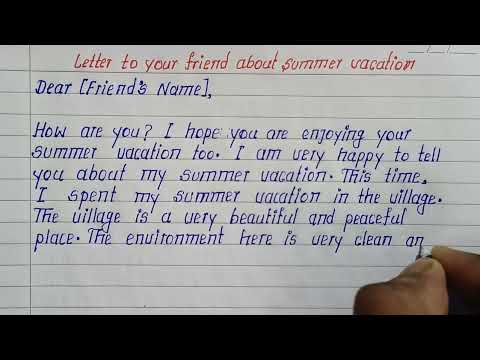 Letter to your friend about summer vacation
Dear [Friend's Name],
How are you? I hope you are enjoying your
summer vacation too. I am very happy to tell
you about my summer vacation. This time,
I spent my summer vacation in the village.
The village is a very beautiful and peaceful
place. The environment here is very clean an